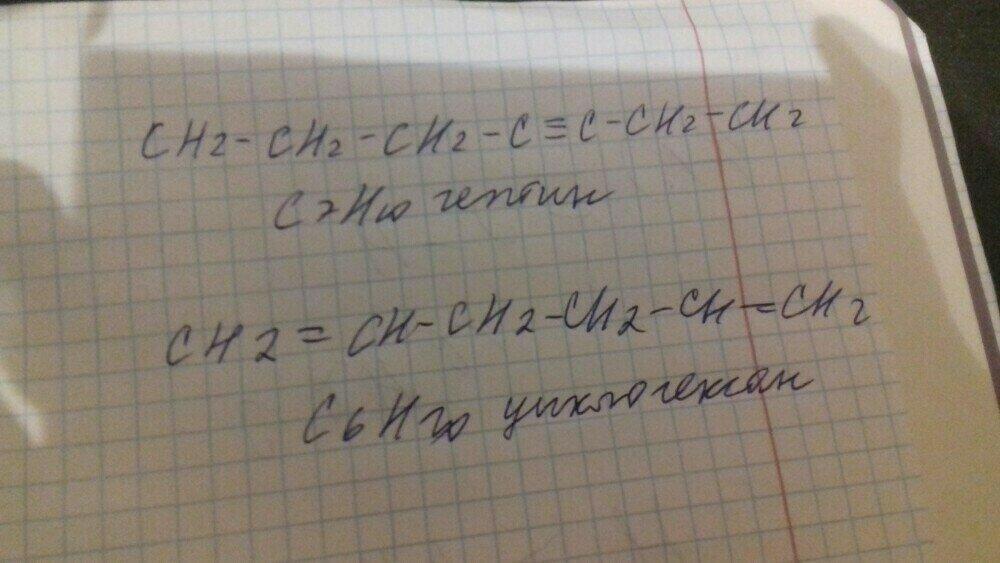 CH2-CH2-CH2-C≡C-CH2-CH2
C7H10 гептин
CH2=CH-CH2-CH2-CH=CH2
C6H10 циклогексан